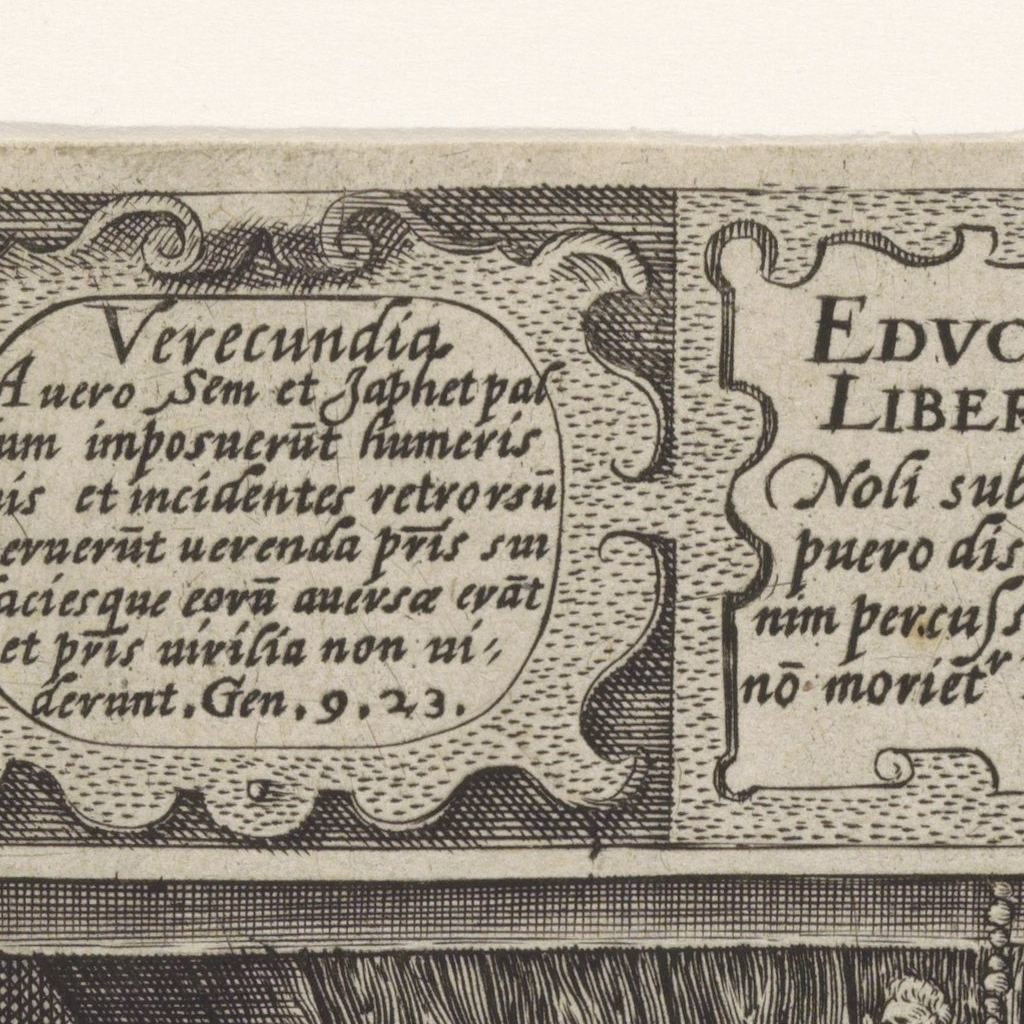 Verecundia
A uero Sem et Japhet pal
um imposuerūt humeris
uis et incidentes retrorsū
eruerūt uerenda pr̄is sui
faciesque eorū auersæ erāt
et pr̄is uirilia non ui-
derunt. Gen. 9. 23.
EDVC
LIBER
Noli sub
puero dis
nim percuss
nō moriēt^r